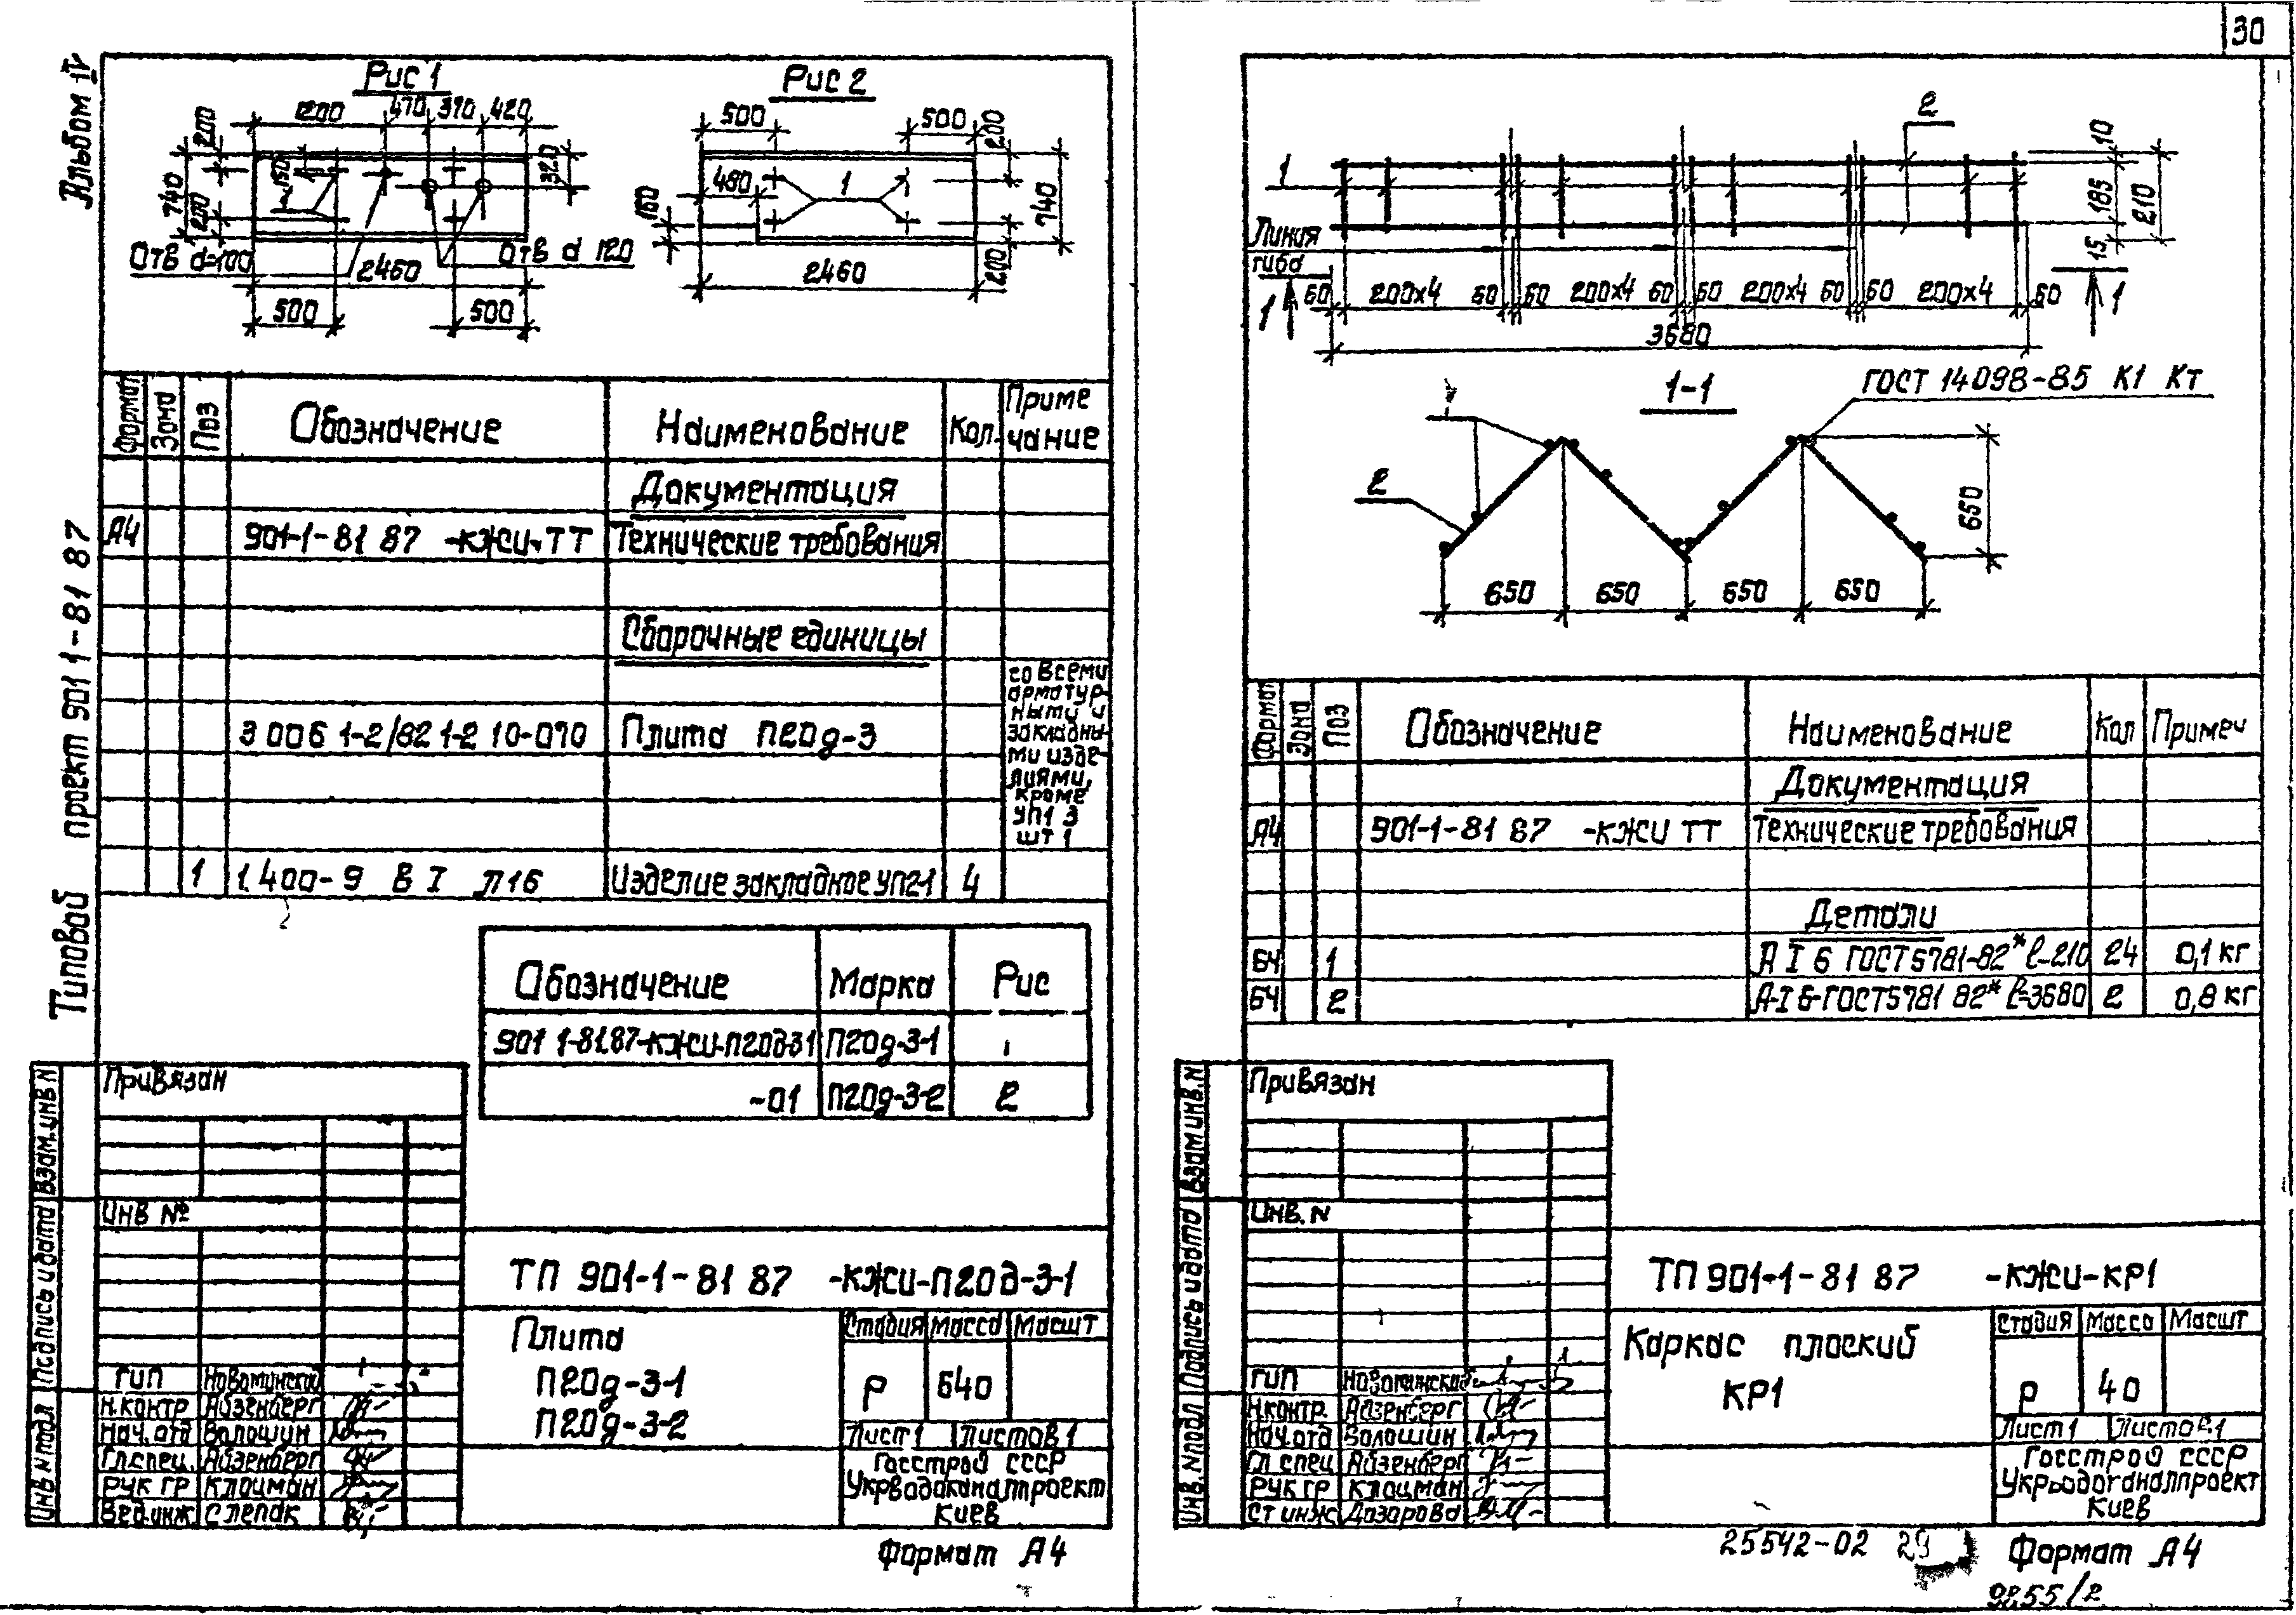 30
Альбом IV
Типовой проект 901 1-81 87
Рис 1
1200 470 370 420
200
740
200
150
320
1
Отв d=100
Отв d 120
2460
500 500
Рис 2
500 500
200
480
1
160
740
200
2460
Формат Зона Поз Обозначение Наименование Кол. Приме чание
Документация
А4 901-1-81 87 -КЖИ-ТТ Технические требования
Сборочные единицы
3 006 1-2/82 1-2 10-070 Плита П20д-3
со всеми
арматур-
ными и
закладны-
ми изде-
лиями,
кроме
УП1 3
шт 1
1 1.400-9 В I л 16 Изделие закладное УП2-1 4
Обозначение Марка Рис
901 1-81.87-КЖИ-П20д-3-1 П20д-3-1 1
-01 П20д-3-2 2
Привязан
Инв №
Взам.инв.N
Подпись и дата
Инв N подл
ТП 901-1-81 87 -КЖИ-П20д-3-1
Плита
П20д-3-1
П20д-3-2
Стадия Масса Масшт
Р 640
Лист 1 Листов 1
Госстрой СССР
Укрводоканалпроект
Киев
ГИП Новоминский
Н.контр Айзенберг
Нач.отд Волошин
Гл.спец. Айзенберг
Рук гр Клоцман
Вед.инж Слепак
Формат А4
2
1
Линия
гиба
10
185
210
15
60 200х4 60 60 200х4 60 60 200х4 60 60 200х4 60
1 1
3680
1-1
ГОСТ 14098-85 К1 Кт
1
2
650
650 650 650 650
Формат Зона Поз Обозначение Наименование Кол Примеч
Документация
А4 901-1-81 87 -КЖИ ТТ Технические требования
Детали
БЧ 1 А I 6 ГОСТ 5781-82* ℓ-210 24 0,1 кг
БЧ 2 А-I 6-ГОСТ 5781 82* ℓ=3680 2 0,8 кг
Привязан
Инв. N
Взам инв. N
Подпись и дата
Инв. N подл
ТП 901-1-81 87 -КЖИ-КР1
Каркас плоский
КР1
Стадия Масса Масшт
Р 40
Лист 1 Листов 1
Госстрой СССР
Укрводоканалпроект
Киев
ГИП Новоминский
Н.контр. Айзенберг
Нач.отд Волошин
Гл спец Айзенберг
Рук гр Клоцман
Ст инж Дозорова
25542-02 29
Формат А4
9855/2